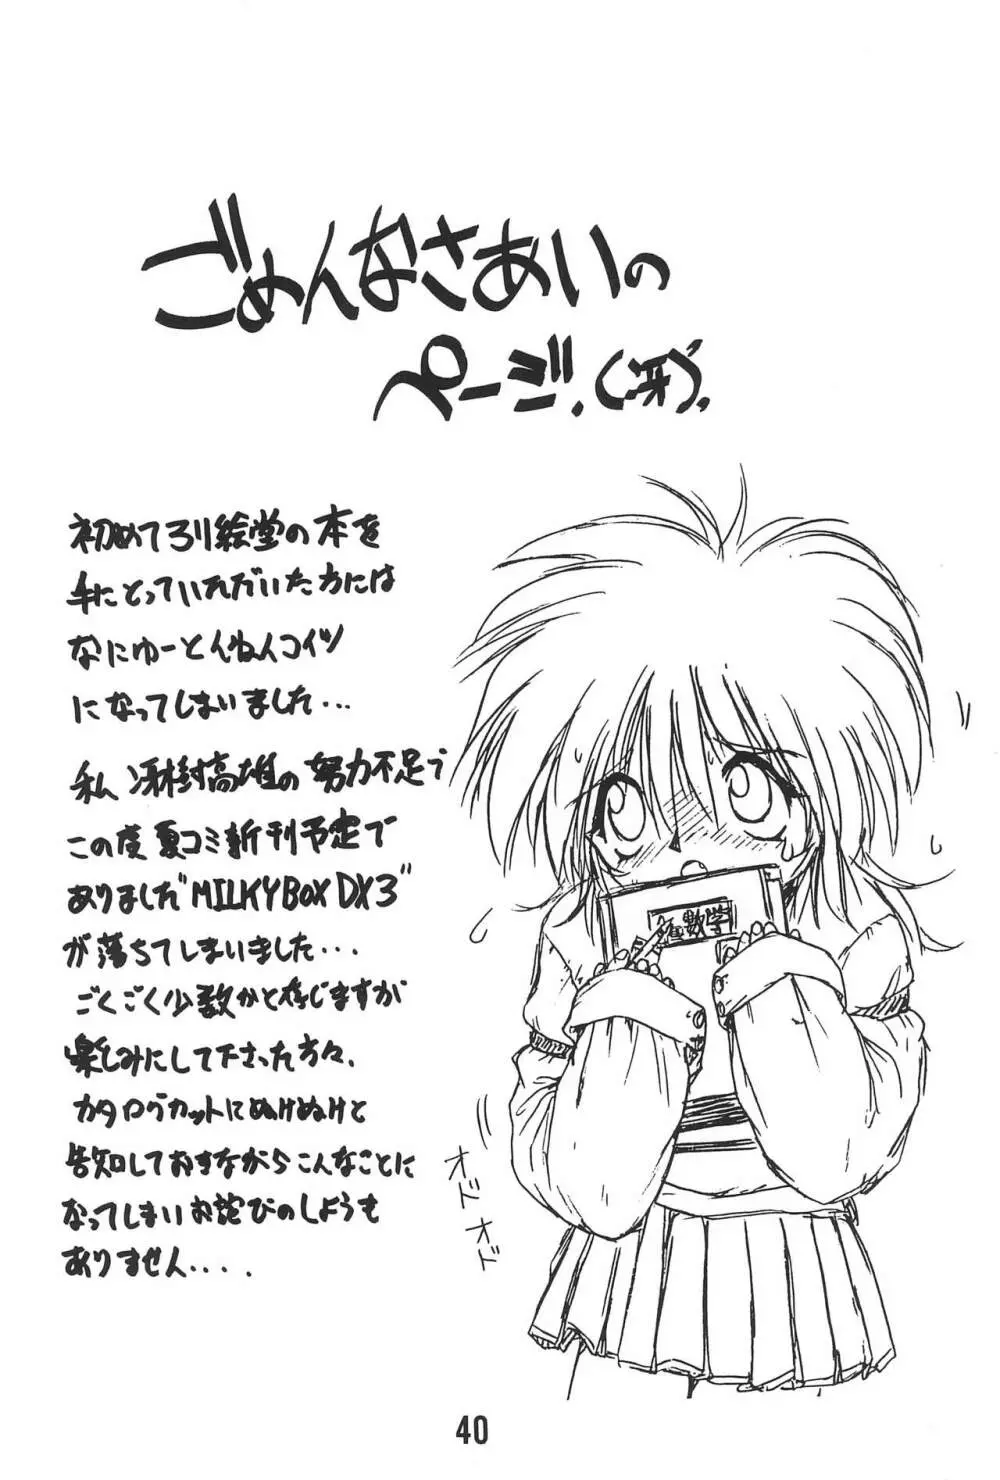 ごめんなさぁいの
ページ.(涙).
初めてろり絵堂の本を
手にとっていただいた方には
なにゆーとんねんコイツ
になってしまいました...
私 冴樹高雄の努力不足で
この度夏コミ新刊予定で
ありました"MILKYBOX DX3"
が落ちてしまいました...
ごくごく少数かと存じますが
楽しみにして下さった方々、
カタログカットにぬけぬけと
告知しておきながらこんなことに
なってしまいお詫びのしようも
ありません....
数学
オドオド
40